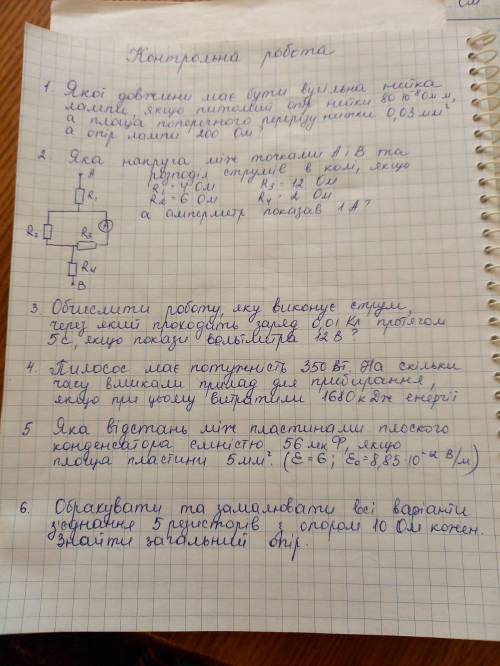 Контрольна робота
1 Якої довжини має бути вугільна нитка
лампи, якщо питомий опір нитки 80·10⁻⁸ Ом·м,
а площа поперечного перерізу нитки 0,03 мм²
а опір лампи 200 Ом?
2. Яка напруга між точками А і В та
розподіл струмів в ком, якщо
R₁ = 4 Ом R₃ = 12 Ом
R₂ = 6 Ом R₄ = 2 Ом
а амперметр показав 1 А?
A
R₁
R₂
A
R₃
R₄
B
3. Обчислити роботу, яку виконує струм,
через який проходить заряд 0,01 Кл протягом
5 с, якщо покази вольтметра 12 В?
4. Пилосос має потужність 350 Вт. На скільки
часу вмикали прилад для прибирання,
якщо при цьому витратили 1680 кДж енергії
5 Яка відстань між пластинами плоского
конденсатора ємністю 56 мкФ, якщо
площа пластини 5 мм². (ε=6; ε₀=8,85·10⁻¹² В/м)
6. Обрахувати та замалювати всі варіанти
з'єднання 5 резисторів з опором 10 Ом кожен.
Знайти загальний опір.